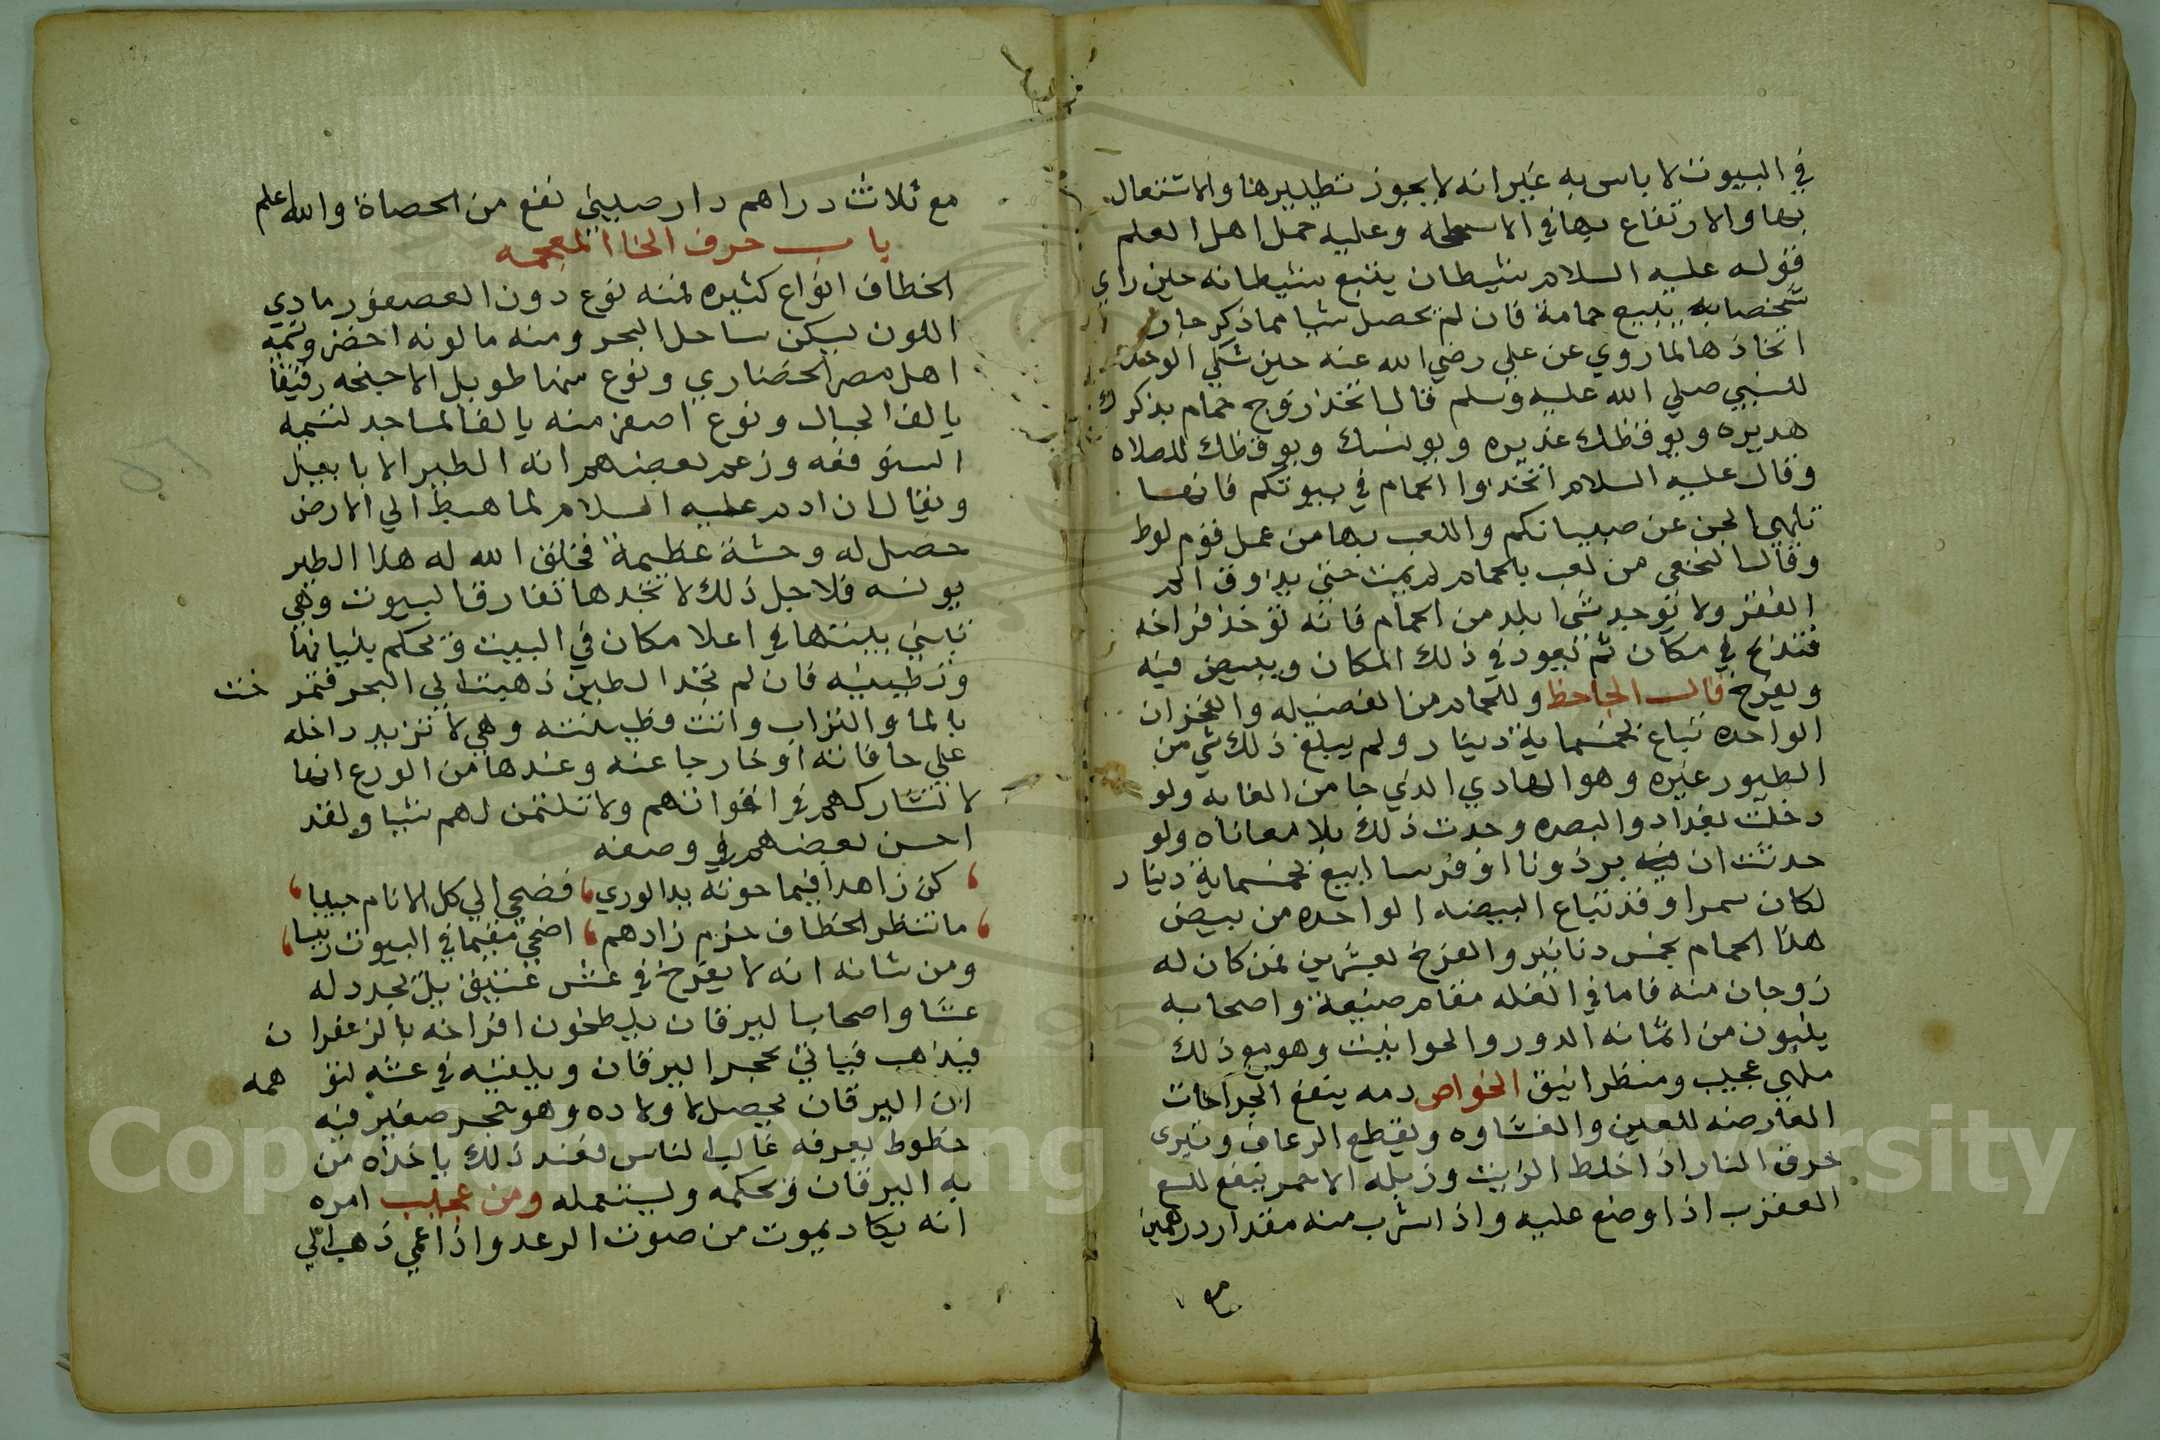 في البيوت لا باس به غير انه لا يجوز تطييرها والاشتغال
بها والارتفاع بها في الاسطحه وعليه حمل اهل العلم
قوله عليه السلام شيطان يتبع شيطانه حين راي
شخصا به يتبع حمامة فان لم يحصل شيا مما ذكر جاز
اتخاذها لما روي عن علي رضي الله عنه حين شكي الوحدة
للنبي صلي الله عليه وسلم قال اتخذ زوج حمام يذكرك
هديره ويوقظك غديره ويونسك ويوقظك للصلاه
وقال عليه السلام اتخذوا الحمام في بيوتكم فانها
تلهي الجن عن صبيانكم واللعب بها من عمل قوم لوط
وقال النخعي من لعب بالحمام لم يمت حتي يذوق الم
الفقر ولا توجد شي ابلد من الحمام فانه توخذ فراخه
فتذبح في مكان ثم تعود في ذلك المكان ويبيض فيه
ويفرخ قال الجاحظ وللحمام من الفضيله والفخر ان
الواحده تباع بخمسماية دينار ولم يبلغ ذلك شي من
الطيور غيره وهو الهادي الذي جا من الغايه ولو
دخلت بغداد والبصره وجدت ذلك بلا معاناه ولو
حدثت ان برذونا او فرسا ابيع بخمسماية دينار
لكان سمرا وقد تباع البيضه الواحده من بيض
هذا الحمام بخمس دنانير والفرخ بعشرين فمن كان له
زوجان منه قاما في الغله مقام ضيعة واصحابه
يبنون من اثمانه الدور والحوانيت وهو مع ذلك
ملهي عجيب ومنظر انيق الخواص دمه ينفع الجراحات
العارضه للعين والغشاوه ويقطع الرعاف ويبري
حرق النار اذا خلط بالزيت وزبله الاحمر ينفع للسع
العقرب اذا وضع عليه واذا شرب منه مقدار درهمين
مع
مع ثلاث دراهم دار صيني نفع من الحصاة والله اعلم
باب حرف الخا المعجمه
الخطاف انواع كثيره فمنه نوع دون العصفور رمادي
اللون يسكن ساحل البحر ومنه ما لونه اخضر وتسميه
اهل مصر الخضاري ونوع منها طويل الاجنحه رقيقا
يالف الجبال ونوع اصغر منه يالف المساجد تسميه
السنوقفه وزعم بعضهم انه الطير الابابيل
ويقال ان ادم عليه السلام لما هبط الي الارض
حصل له وحشة عظيمة فخلق الله له هذا الطير
يونسه فلاجل ذلك لا تجدها تفارق البيوت وهي
تبني بيتها في اعلا مكان في البيت وتحكم بنيانها
وتطينه فان لم تجد الطين ذهبت الي البحر فتمرخت
بالما والتراب واتت فطينته وهي لا تزبد داخله
علي حافاته او خارجا عنه وعندها من الورع انها
لا تشاركهم في اقواتهم ولا تلتمس لهم شيا ولقد
احسن بعضهم في وصفه
كن زاهدا فيما حوته يد الوري، فضحي الي كل الانام حبيبا
ما تنظر الخطاف حرم زادهم، اضحي مقيما في البيوت ربيبا
ومن شانه انه لا يفرخ في عش عتيق بل يجدد له
عشا واصحاب اليرقان يلطخون افراخه بالزعفران
فيذهب فياتي بحجر اليرقان ويلقيه في عشه لتوهمه
ان اليرقان يحصل لاولاده وهو حجر صغير فيه
خطوط يعرفه غالب الناس فعند ذلك ياخذه من
به اليرقان فيحكمه ويستعمله ومن عجيب امره
انه يكاد يموت من صوت الرعد واذا عمي ذهب الي